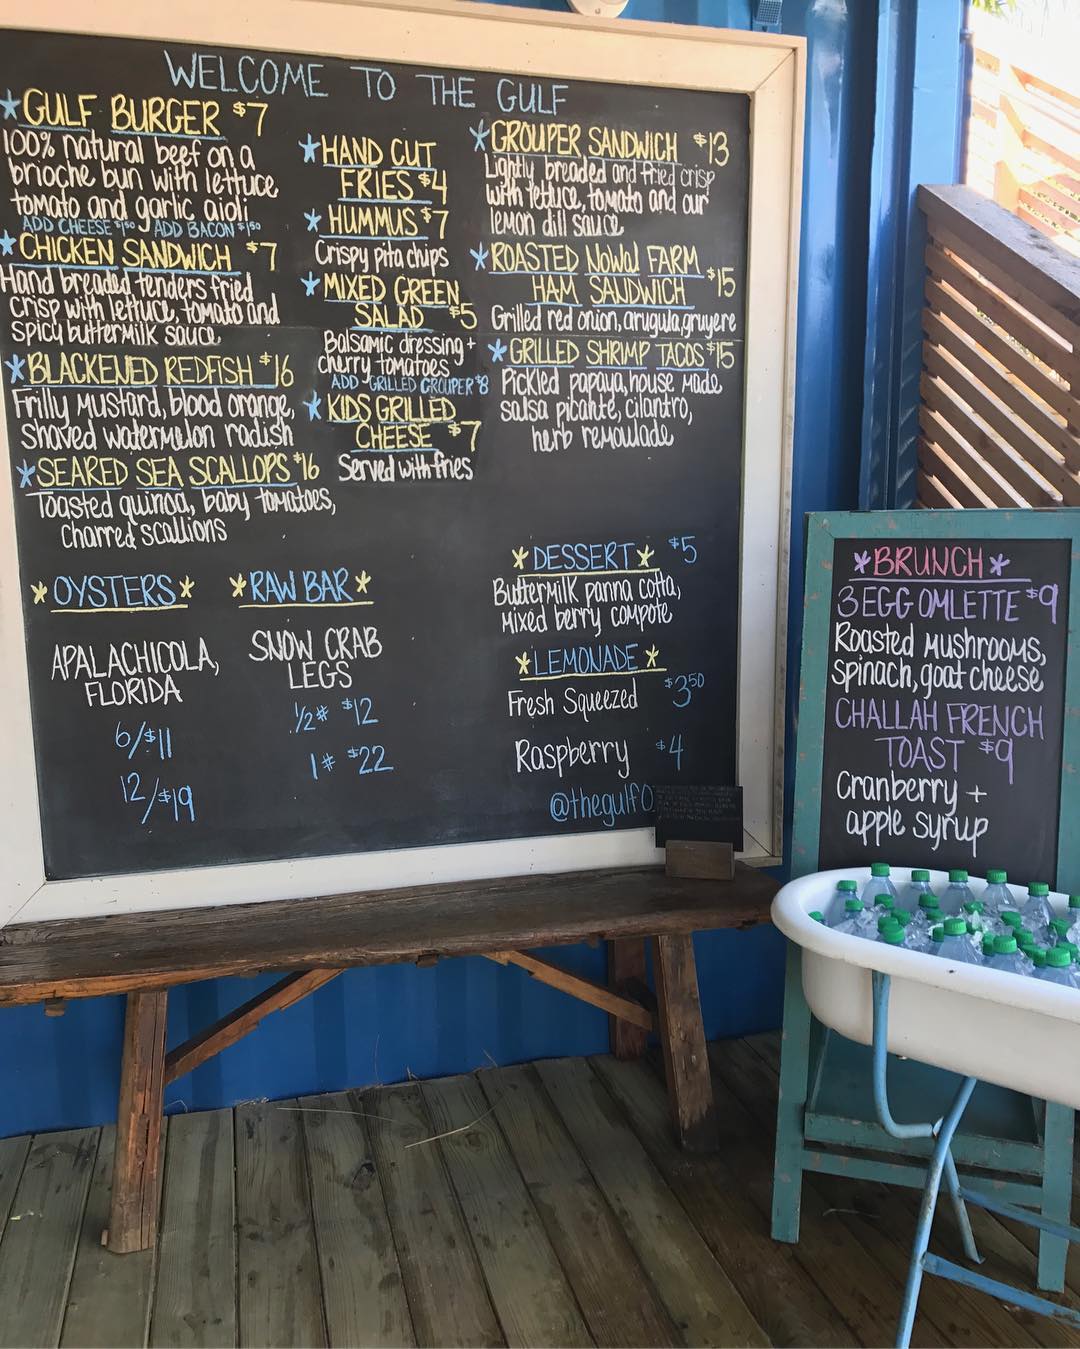 WELCOME TO THE GULF
*GULF BURGER $7
100% natural beef on a
brioche bun with lettuce
tomato and garlic aioli
ADD CHEESE $1.50 ADD BACON $1.50
*CHICKEN SANDWICH $7
Hand breaded tenders fried
crisp with lettuce, tomato and
spicy buttermilk sauce
*BLACKENED REDFISH $16
Frilly Mustard, blood orange,
Shaved watermelon radish
*SEARED SEA SCALLOPS $16
Toasted quinoa, baby tomatoes,
charred scallions
*HAND CUT
FRIES $4
*HUMMUS $7
Crispy pita chips
*MIXED GREEN
SALAD $5
Balsamic dressing +
cherry tomatoes
ADD - GRILLED GROUPER $8
*KIDS GRILLED
CHEESE $7
Served with fries
*GROUPER SANDWICH $13
Lightly breaded and fried crisp
with lettuce, tomato and our
lemon dill sauce
*ROASTED NOWOL FARM
HAM SANDWICH $15
Grilled red onion, arugula, gruyere
*GRILLED SHRIMP TACOS $15
Pickled papaya, house made
salsa picante, cilantro,
herb remoulade
*OYSTERS*
APALACHICOLA,
FLORIDA
6/$11
12/$19
*RAW BAR*
SNOW CRAB
LEGS
1/2# $12
1# $22
*DESSERT* $5
Buttermilk panna cotta,
Mixed berry compote
*LEMONADE*
Fresh Squeezed $3.50
Raspberry $4
@thegulfo
*BRUNCH*
3 EGG OMLETTE $9
Roasted mushrooms,
spinach, goat cheese
CHALLAH FRENCH
TOAST $9
Cranberry +
apple syrup